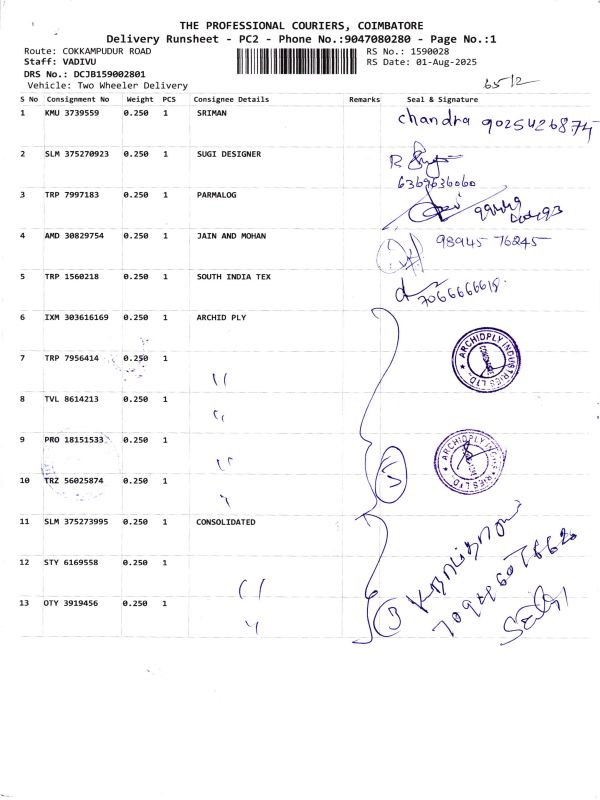 THE PROFESSIONAL COURIERS, COIMBATORE
Delivery Runsheet - PC2 - Phone No.:9047080280 - Page No.:1
Route: COKKAMPUDUR ROAD RS No.: 1590028
Staff: VADIVU RS Date: 01-Aug-2025
DRS No.: DCJB159002801
Vehicle: Two Wheeler Delivery
S No Consignment No Weight PCS Consignee Details Remarks Seal & Signature
1 KMU 3739559 0.250 1 SRIMAN chandra 9025426874
2 SLM 375270923 0.250 1 SUGI DESIGNER
6369636060
3 TRP 7997183 0.250 1 PARMALOG
4 AMD 30829754 0.250 1 JAIN AND MOHAN 98945 76245
5 TRP 1560218 0.250 1 SOUTH INDIA TEX
7066666618
6 IXM 303616169 0.250 1 ARCHID PLY
ARCHIDPLY INDUSTRIES LTD.
7 TRP 7956414 0.250 1 "
8 TVL 8614213 0.250 1 "
9 PRO 18151533 0.250 1 "
ARCHIDPLY INDUSTRIES LTD.
10 TRZ 56025874 0.250 1 "
5
11 SLM 375273995 0.250 1 CONSOLIDATED
12 STY 6169558 0.250 1 "
13 OTY 3919456 0.250 1 "
3